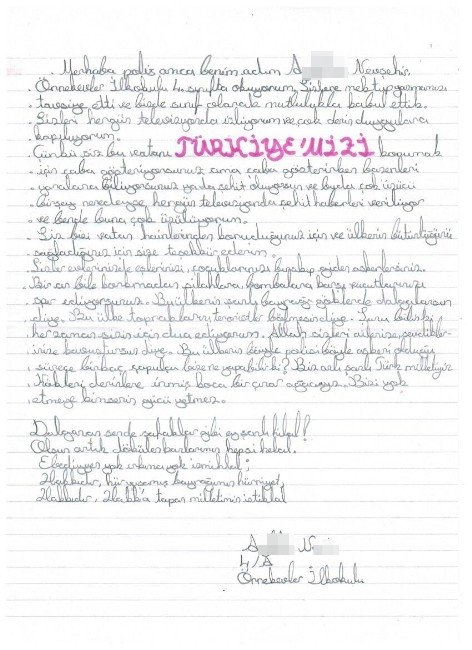 Merhaba polis amca benim adım A Nevşehir
Örnekevler İlkokulu 4. sınıfta okuyorum. Sizlere mektup yazmamızı
tavsiye etti ve bizde sınıf olarak mutlulukla kabul ettik.
Sizleri hergün televizyonda izliyorum ve çok derin duygulara
kapılıyorum.
Çünkü siz bu vatanı TÜRKİYE'MİZİ korumak
için çaba gösteriyorsunuz ama çaba gösterirken bazenleri
yaralana biliyorsunuz yada şehit oluyorsun ve buda çok üzücü
birşey neredeyse hergün televizyonda şehit haberleri veriliyor
ve bende buna çok üzülüyorum.
Siz bizi vatan hainlerinden koruduğunuz için ve ülkenin bütünlüğünü
sağladığınız için size teşekkür ederim.
Sizler evlerinizde eşlerinizi, çocuklarınızı bırakıp giden askerlersiniz.
Bir an bile korkmadan silahlara bombalara karşı vucutlarınızı
siper ediyorsunuz. Bu ülkenin şanlı bayrağı göklerde dalgalansın
diye. Bu ülke topraklarını teröristler bölmesin diye. Şunu bilinki
her zaman sizin için dua ediyorum. Allah sizleri ailenize, sevdikleri-
nize kavuştursun diye. Bu ülkenin böyle polisi böyle askeri olduğu
sürece birkaç çapulcu bize ne yapabilir ki? Biz asil şanlı Türk milletiyiz
Kökleri derinlere inmiş koca bir çınar ağacıyız. Bizi yok
etmeye kimsenin gücü yetmez.
Dalgalan sende şafaklar gibi ey şanlı hilal!
Olsun artık dökülen kanlarımın hepsi helal.
Ebediyyen yok ırkıma yok izmihlal;
Hakkıdır, hür yaşamış bayrağımın hürriyet,
Hakkıdır, Hakk'a tapan milletimin istiklal
A N
4/A
Örnekevler İlkokulu